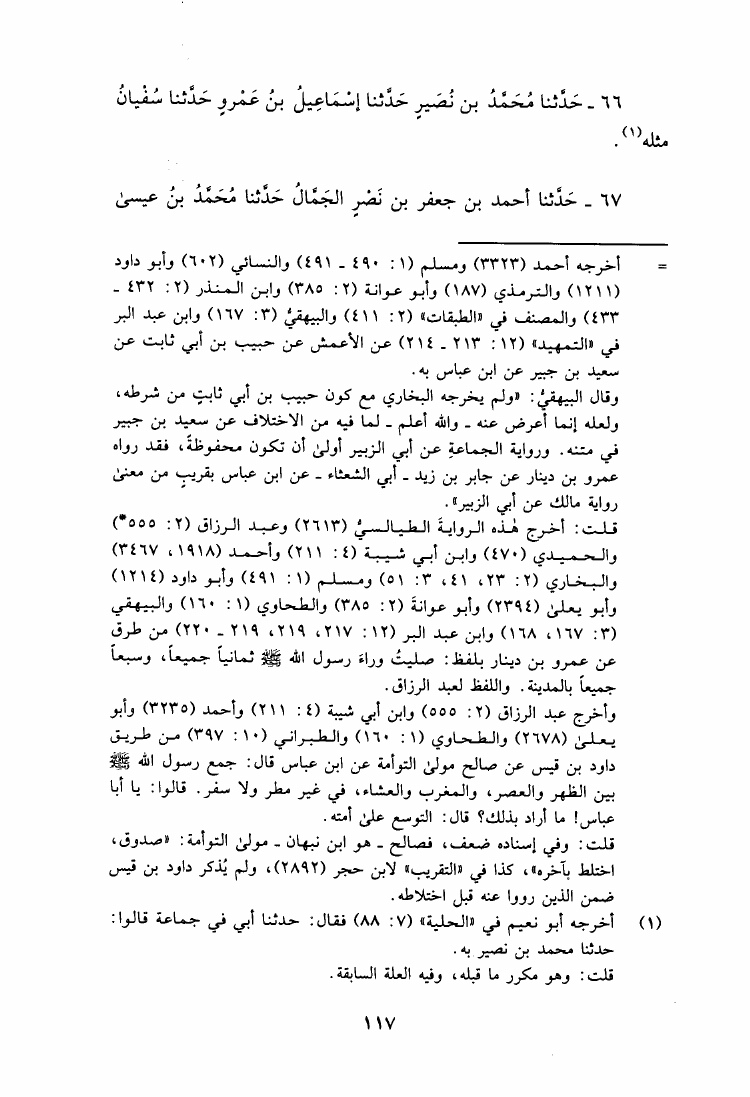 ٦٦ ـ حَدَّثنا مُحَمَّدُ بن نُصَيرٍ حَدَّثنا إسْمَاعِيلُ بنُ عَمْرٍو حَدَّثنا سُفْيانُ
مثله(١).
٦٧ ـ حَدَّثنا أحمد بن جعفر بن نَصْرٍ الجَمَّالُ حَدَّثنا مُحَمَّدُ بنُ عيسىٰ
= أخرجه أحمد (٣٣٢٣) ومسلم (١: ٤٩٠ ـ ٤٩١) والنسائي (٦٠٢) وأبو داود
(١٢١١) والترمذي (١٨٧) وأبو عوانة (٢: ٣٨٥) وابن المنذر (٢: ٤٣٢ ـ
٤٣٣) والمصنف في «الطبقات» (٢: ٤١١) والبيهقيُّ (٣: ١٦٧) وابن عبد البر
في «التمهيد» (١٢: ٢١٣ ـ ٢١٤) عن الأعمش عن حبيب بن أبي ثابت عن
سعيد بن جبير عن ابن عباس به.
وقال البيهقيُّ: «ولم يخرجه البخاري مع كون حبيب بن أبي ثابتٍ من شرطه،
ولعله إنما أعرض عنه ـ والله أعلم ـ لما فيه من الاختلاف عن سعيد بن جبير
في متنه. ورواية الجماعةِ عن أبي الزبير أولىٰ أن تكون محفوظةً، فقد رواه
عمرو بن دينار عن جابر بن زيد ـ أبي الشعثاء ـ عن ابن عباس بقريبٍ من معنىٰ
رواية مالك عن أبي الزبير».
قلت: أخرج هٰذه الروايةَ الطيالسيُّ (٢٦١٣) وعبد الرزاق (٢: ٥٥٥*)
والحميدي (٤٧٠) وابن أبي شيبة (٤: ٢١١) وأحمد (١٩١٨، ٣٤٦٧)
والبخاري (٢: ٢٣، ٤١، ٣: ٥١) ومسلم (١: ٤٩١) وأبو داود (١٢١٤)
وأبو يعلىٰ (٢٣٩٤) وأبو عوانةَ (٢: ٣٨٥) والطحاوي (١: ١٦٠) والبيهقي
(٣: ١٦٧، ١٦٨) وابن عبد البر (١٢: ٢١٧، ٢١٩، ٢١٩ ـ ٢٢٠) من طرق
عن عمرو بن دينار بلفظ: صليتُ وراءَ رسول الله ﷺ ثمانياً جميعاً، وسبعاً
جميعاً بالمدينة. واللفظ لعبد الرزاق.
وأخرج عبد الرزاق (٢: ٥٥٥) وابن أبي شيبة (٤: ٢١١) وأحمد (٣٢٣٥) وأبو
يعلىٰ (٢٦٧٨) والطحاوي (١: ١٦٠) والطبراني (١٠: ٣٩٧) من طريق
داود بن قيس عن صالح مولىٰ التوأمة عن ابن عباس قال: جمع رسول الله ﷺ
بين الظهر والعصر، والمغرب والعشاء، في غير مطر ولا سفر. قالوا: يا أبا
عباس! ما أراد بذلك؟ قال: التوسع علىٰ أمته.
قلت: وفي إسناده ضعف، فصالح ـ هو ابن نبهان ـ مولىٰ التوأمة: «صدوق،
اختلط بآخره»، كذا في «التقريب» لابن حجر (٢٨٩٢)، ولم يُذكر داود بن قيس
ضمن الذين رووا عنه قبل اختلاطه.
(١) أخرجه أبو نعيم في «الحلية» (٧: ٨٨) فقال: حدثنا أبي في جماعة قالوا:
حدثنا محمد بن نصير به.
قلت: وهو مكرر ما قبله، وفيه العلة السابقة.
١١٧